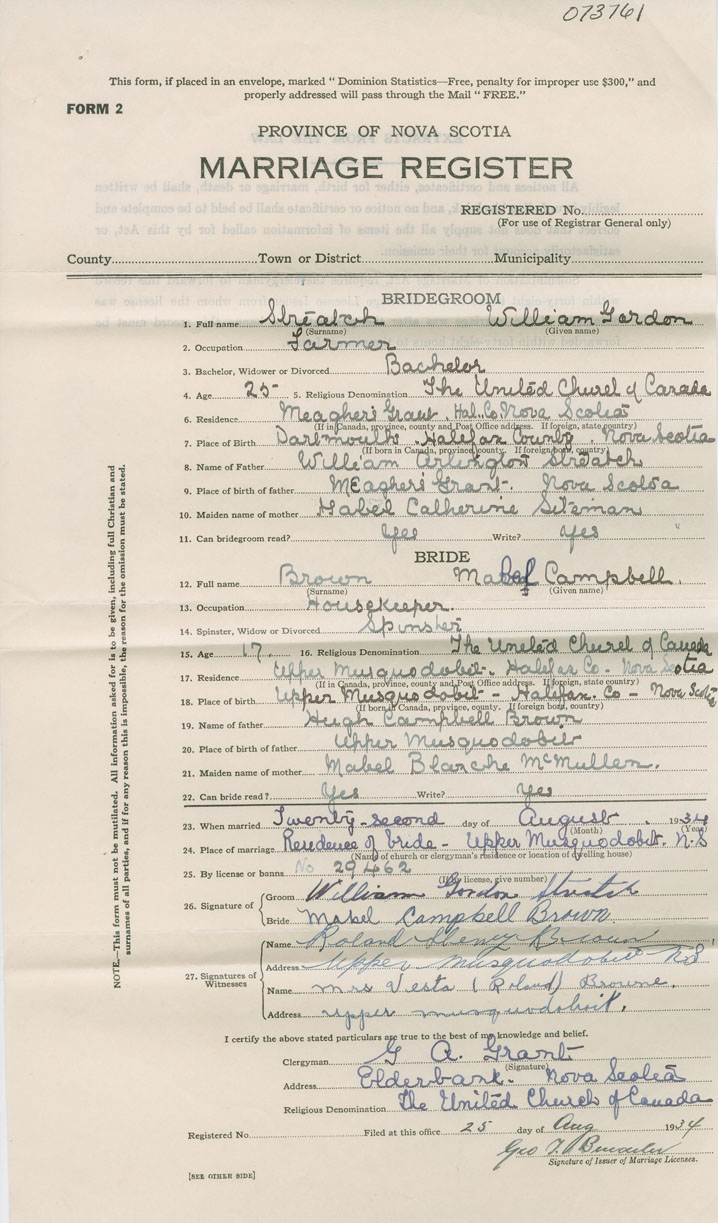 073761
This form, if placed in an envelope, marked " Dominion Statistics—Free, penalty for improper use $300," and
properly addressed will pass through the Mail " FREE."
FORM 2
PROVINCE OF NOVA SCOTIA
MARRIAGE REGISTER
REGISTERED No.
(For use of Registrar General only)
County Town or District Municipality
BRIDEGROOM
1. Full name Streatch William Gordon
(Surname) (Given name)
2. Occupation Farmer
3. Bachelor, Widower or Divorced Bachelor
4. Age 25 5. Religious Denomination The United Church of Canada
6. Residence Meagher's Grant. Hal. Co Nova Scotia
(If in Canada, province, county and Post Office address. If foreign, state country)
7. Place of Birth Dartmouth. Halifax County. Nova Scotia
(If born in Canada, province, county. If foreign born, country)
8. Name of Father William Arlington Streatch
9. Place of birth of father Meagher's Grant. Nova Scotia
10. Maiden name of mother Catherine Siteman
11. Can bridegroom read? Yes Write? Yes
BRIDE
12. Full name Brown Mabel Campbell.
(Surname) (Given name)
13. Occupation Housekeeper.
14. Spinster, Widow or Divorced Spinster
15. Age 17. 16. Religious Denomination The United Church of Canada
17. Residence Upper Musquodobit. Halifax Co - Nova Scotia
(If in Canada, province, county and Post Office address. If foreign, state country)
18. Place of birth Upper Musquodobit - Halifax. Co - Nova Scotia
(If born in Canada, province, county. If foreign born, country)
19. Name of father Hugh Campbell Brown
20. Place of birth of father Upper Musquodobit
21. Maiden name of mother Mabel Blanche McMullen.
22. Can bride read? Yes Write? Yes
23. When married Twenty-second day of August. 1934
(Month) (Year)
24. Place of marriage Residence of bride - Upper Musquodobit. N.S
(Name of church or clergyman's residence or location of dwelling house)
25. By license or banns No 29462
(If by license, give number)
26. Signature of Groom William Gordon Streatch
Bride Mabel Campbell Brown
27. Signatures of Witnesses
Name Roland Henry Brown
Address Upper Musquodobit NS
Name Mrs Vesta (Roland) Browne.
Address Upper Musquodobit.
I certify the above stated particulars are true to the best of my knowledge and belief.
Clergyman G A. Grant
(Signature)
Address Elderbank. Nova Scotia
Religious Denomination The United Church of Canada
Registered No. Filed at this office 25 day of Aug 1934
Geo T.
Signature of Issuer of Marriage Licenses.
[SEE OTHER SIDE]
NOTE.—This form must not be mutilated. All information asked for is to be given, including full Christian and
surnames of all parties, and if for any reason this is impossible, the reason for the omission must be stated.